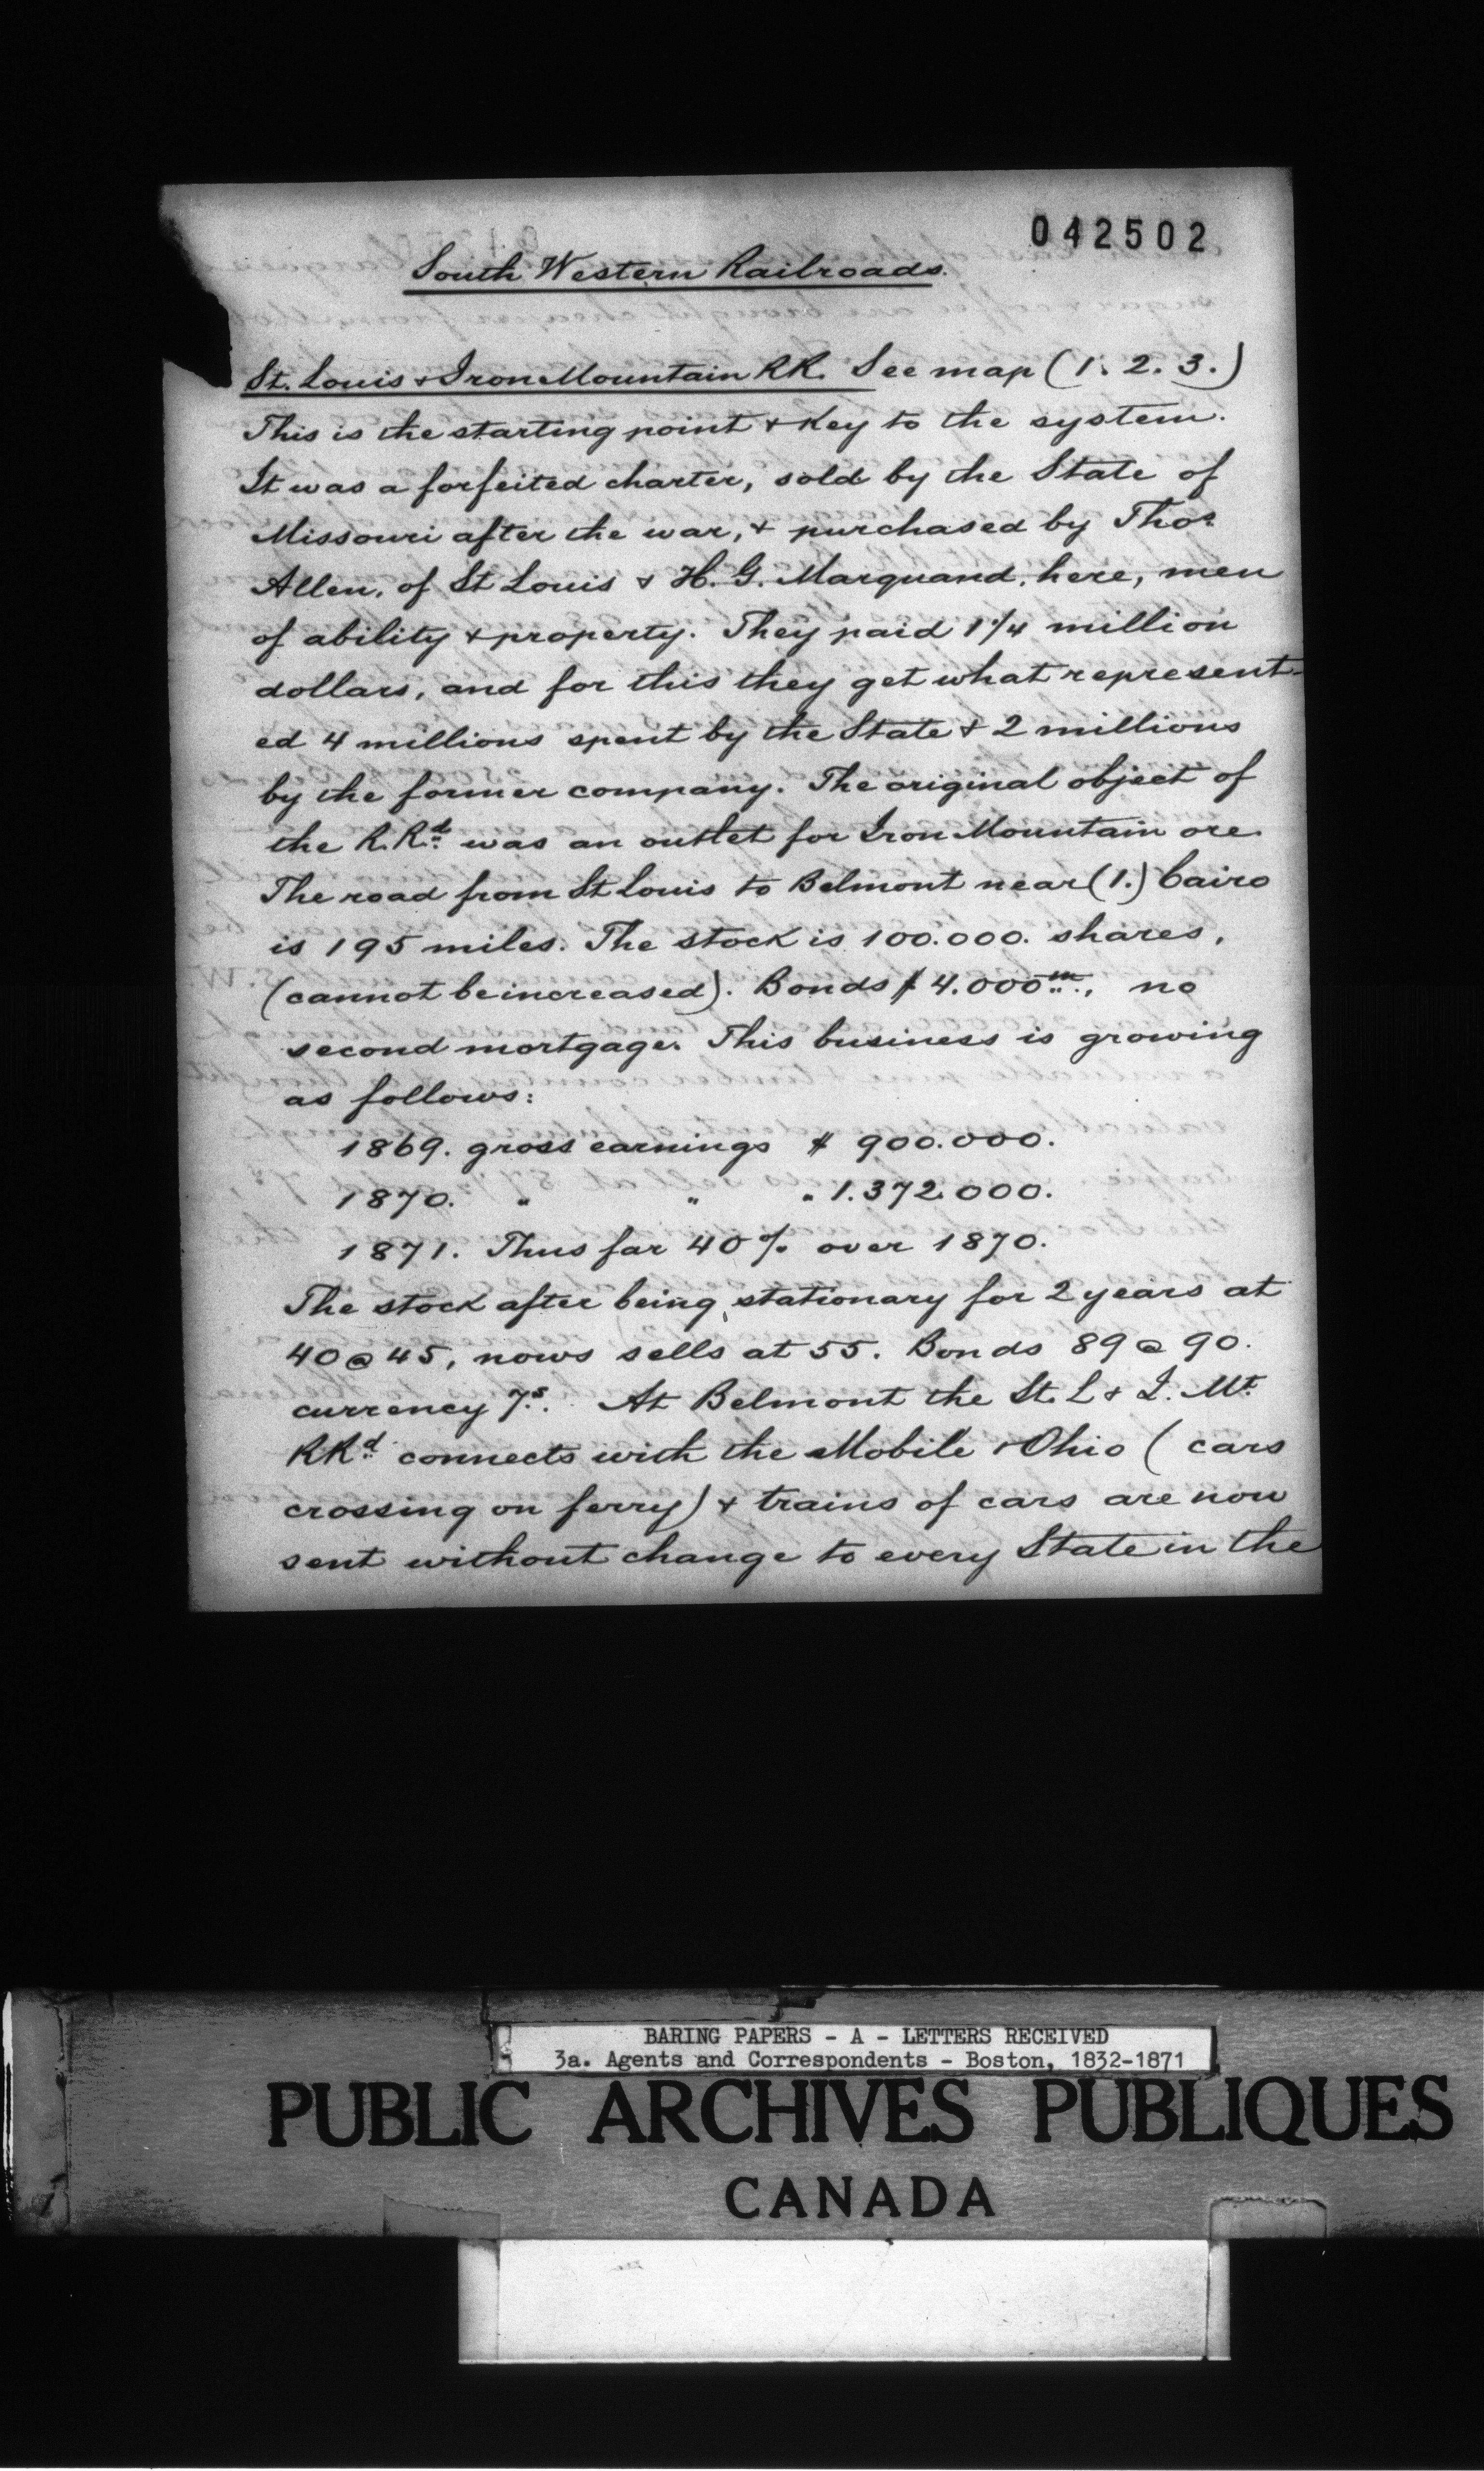 042502
South Western Railroads.
St. Louis & Iron Mountain RR. See map (1. 2. 3.)
This is the starting point & Key to the system.
It was a forfeited charter, sold by the State of
Missouri after the war, & purchased by Thos.
Allen, of St Louis & H. G. Marquand, here, men
of ability & property. They paid 1 1/4 million
dollars, and for this they get what represent-
ed 4 millions spent by the State & 2 millions
by the former company. The original object of
the R.Rd. was an outlet for Iron Mountain ore.
The road from St Louis to Belmont near (1.) Cairo
is 195 miles. The stock is 100.000. shares,
(cannot be increased). Bonds $ 4.000m., no
second mortgage. This business is growing
as follows:
1869. gross earnings $ 900.000.
1870. " " " 1.372.000.
1871. Thus far 40% over 1870.
The stock after being stationary for 2 years at
40 @ 45, nows sells at 55. Bonds 89 @ 90.
currency 7s. At Belmont the St. L & I. Mt.
RRd. connects with the Mobile & Ohio (cars
crossing on ferry) & trains of cars are now
sent without change to every State in the
BARING PAPERS - A - LETTERS RECEIVED
3a. Agents and Correspondents - Boston, 1832-1871
PUBLIC ARCHIVES PUBLIQUES
CANADA